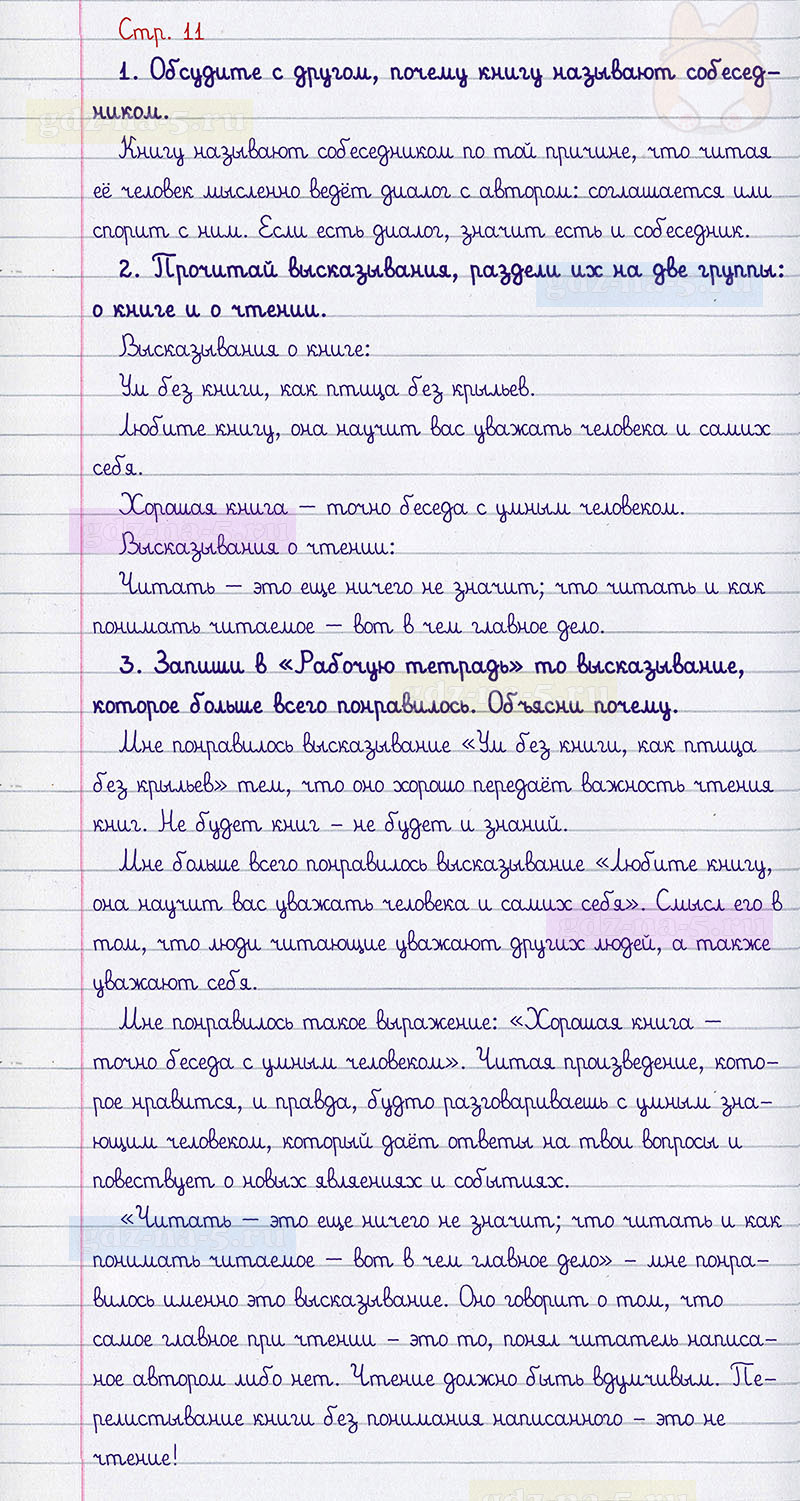 Стр. 11
1. Обсудите с другом, почему книгу называют собесед-
ником.
gdz-na-5.ru
Книгу называют собеседником по той причине, что читая
её человек мысленно ведёт диалог с автором: соглашается или
спорит с ним. Если есть диалог, значит есть и собеседник.
2. Прочитай высказывания, раздели их на две группы:
gdz-na-5.ru
о книге и о чтении.
Высказывания о книге:
Ум без книги, как птица без крыльев.
Любите книгу, она научит вас уважать человека и самих
себя.
Хорошая книга — точно беседа с умным человеком.
gdz-na-5.ru
Высказывания о чтении:
Читать — это еще ничего не значит; что читать и как
понимать читаемое — вот в чем главное дело.
3. Запиши в «Рабочую тетрадь» то высказывание,
gdz-na-5.ru
которое больше всего понравилось. Объясни почему.
Мне понравилось высказывание «Ум без книги, как птица
без крыльев» тем, что оно хорошо передаёт важность чтения
книг. Не будет книг – не будет и знаний.
Мне больше всего понравилось высказывание «Любите книгу,
она научит вас уважать человека и самих себя». Смысл его в
gdz-na-5.ru
том, что люди читающие уважают других людей, а также
уважают себя.
Мне понравилось такое выражение: «Хорошая книга —
точно беседа с умным человеком». Читая произведение, кото-
рое нравится, и правда, будто разговариваешь с умным зна-
ющим человеком, который даёт ответы на твои вопросы и
повествует о новых явлениях и событиях.
«Читать — это еще ничего не значит; что читать и как
gdz-na-5.ru
понимать читаемое — вот в чем главное дело» – мне понра-
вилось именно это высказывание. Оно говорит о том, что
самое главное при чтении – это то, понял читатель написа-
ное автором либо нет. Чтение должно быть вдумчивым. Пе-
релистывание книги без понимания написанного – это не
чтение!
gdz-na-5.ru